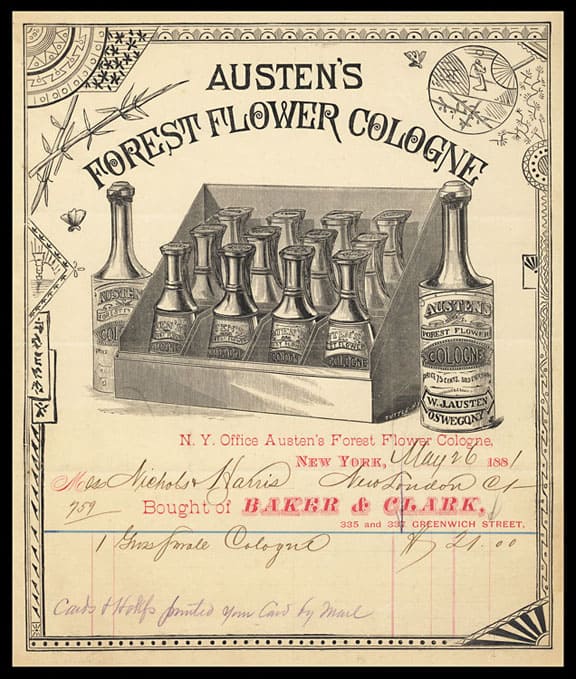 AUSTEN'S
FOREST FLOWER COLOGNE
AUSTEN
COL
AUSTEN'S
FOREST FLOWER
COLOGNE
W.J. AUSTEN
OSWEGO NY
N. Y. Office Austen's Forest Flower Cologne,
NEW YORK, May 26 1881
Mess Nichols & Harris New London Ct
759 Bought of BAKER & CLARK,
335 and 337 GREENWICH STREET,
1 Cologne $ 21.00
Cards & printed your Card by Mail